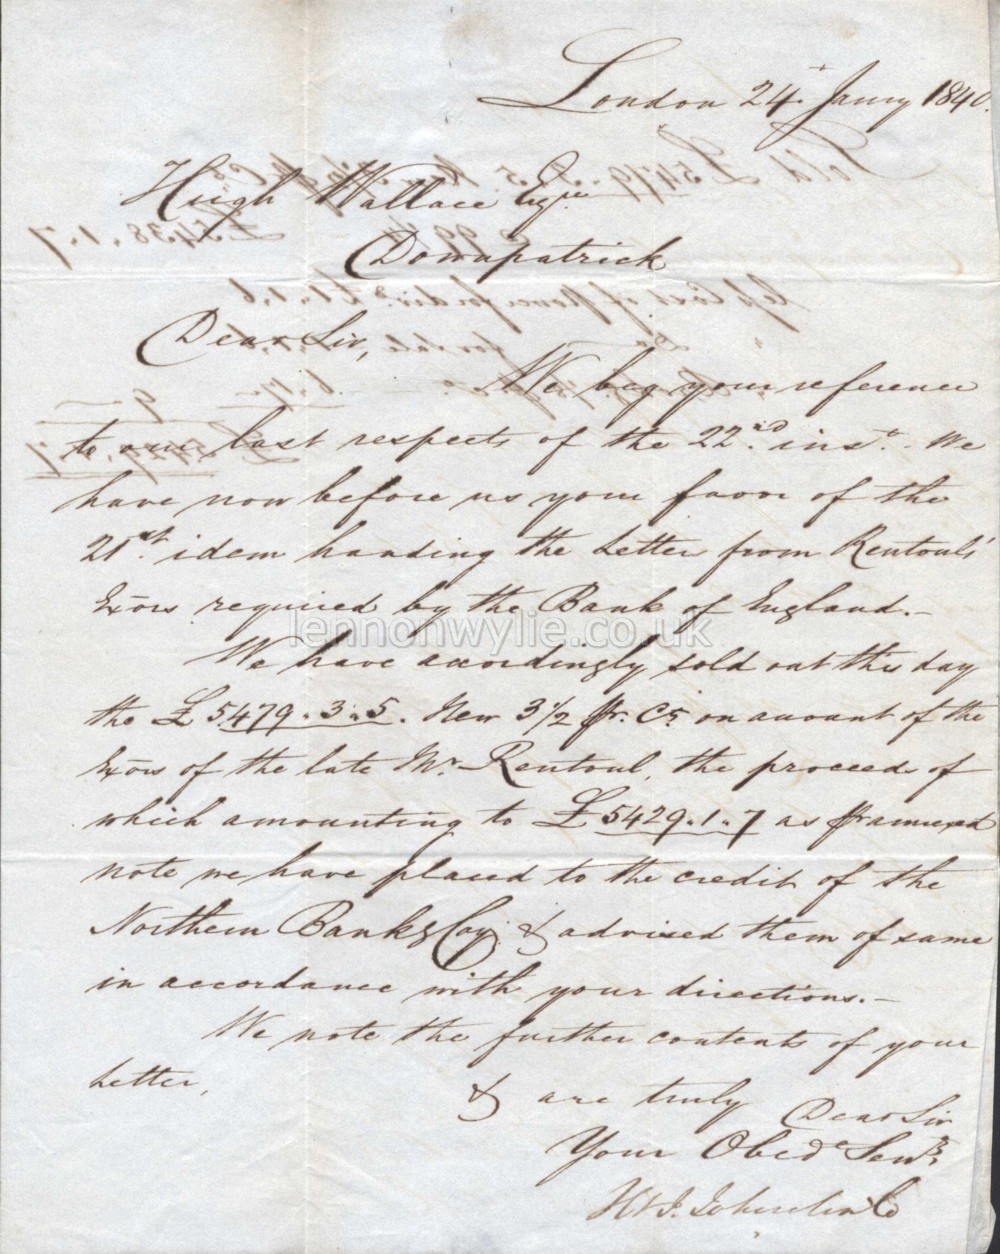 London 24th Jany 1840.
Hugh Wallace Esqre
Downpatrick
Dear Sir,
We beg your reference
to our last respects of the 22nd inst. We
have now before us your favor of the
21st idem handing the Letter from Rentoul's
Exōrs required by the Bank of England.—
We have accordingly sold out this day
the £5479.3.5. New 3½ pr. Cts on account of the
Exōrs of the late Mr. Rentoul, the proceeds of
which amounting to £5429.1.7 as pr annexed
note we have placed to the credit of the
Northern Bankg Coy. & advised them of same
in accordance with your directions.—
We note the further contents of your
Letter,
& are truly Dear Sir
Your Obedt Servts
lennonwylie.co.uk